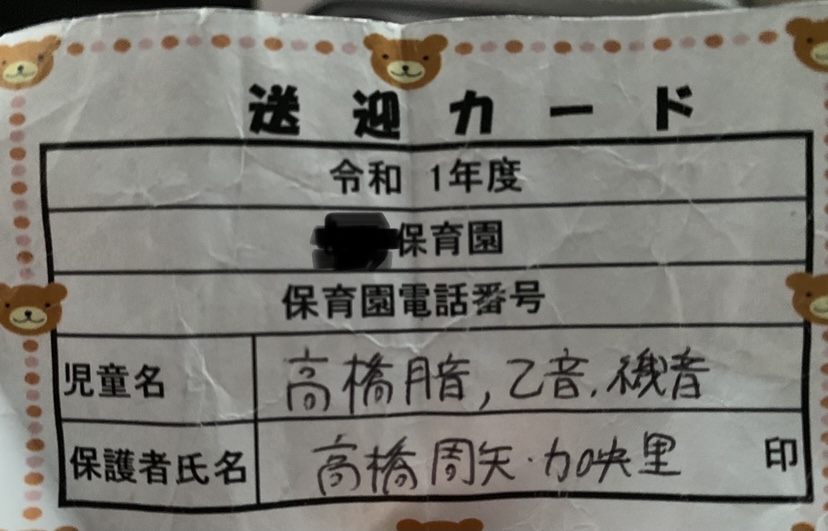 送迎カード
令和 1年度
保育園
保育園電話番号
児童名 高橋月音,乙音,機音
保護者氏名 高橋周矢・加映里 印